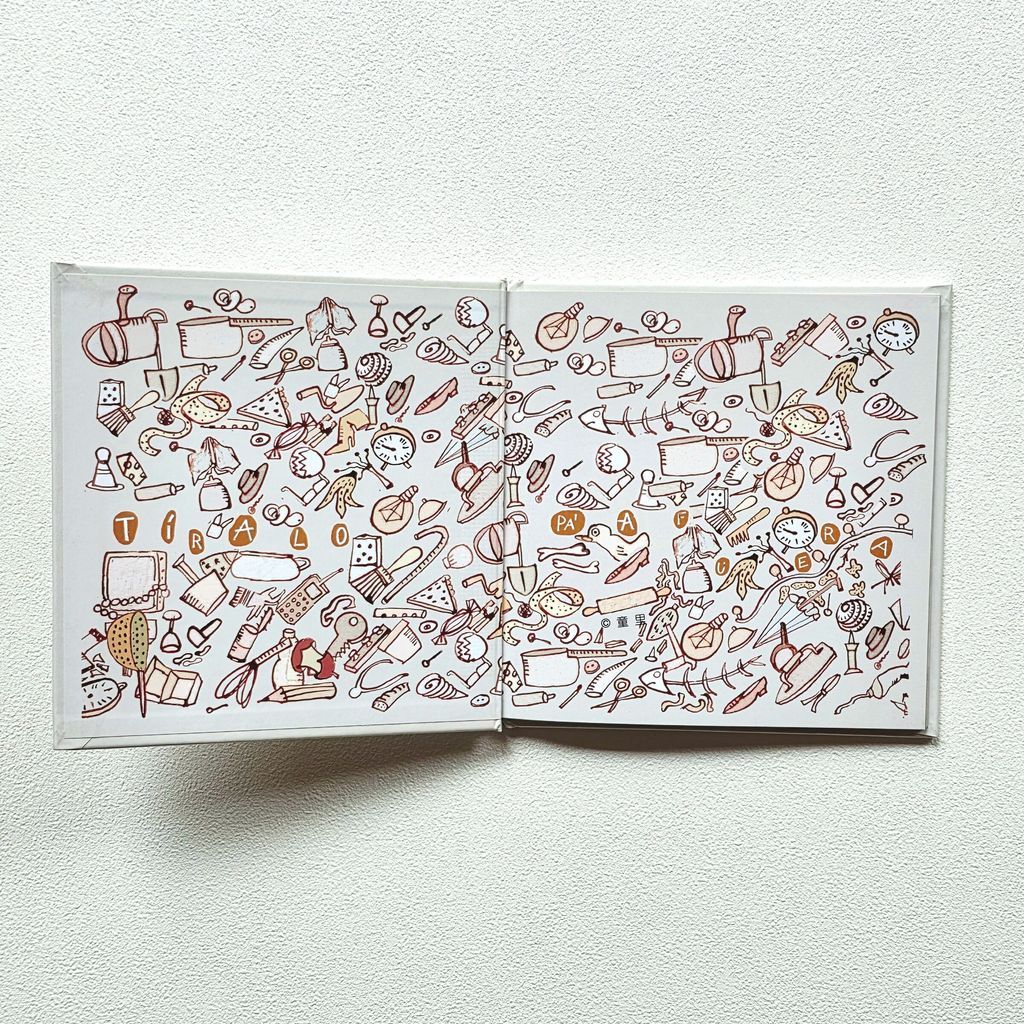 TíRALO
PA' AFUERA
© 童里